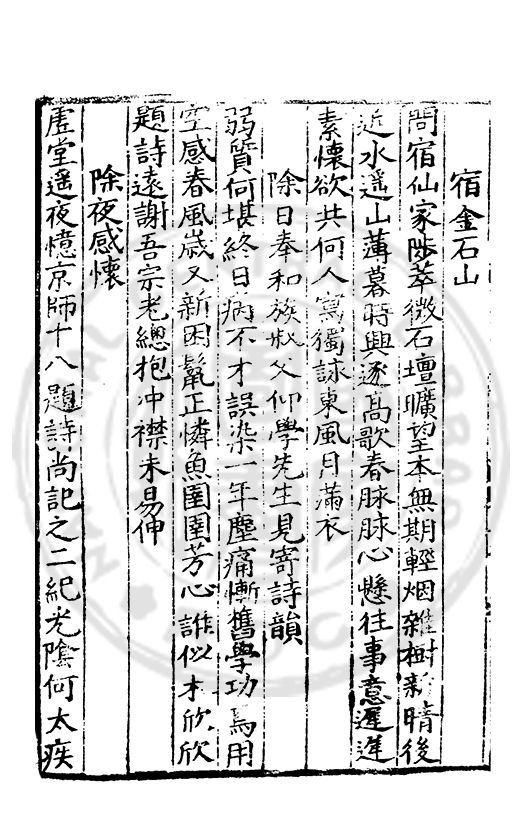 宿金石山
問宿仙家陟萃微石壇曠望本無期輕烟雜樹新晴後
近水遥山薄暮時興逐高歌春脉脉心懸往事意遲遲
素懷欲共何人寫獨詠東風月滿衣
除日奉和族叔父仰學先生見寄詩韻
弱質何堪終日病不才誤染一年塵痛慚舊學功焉用
空感春風嵗又新困鬣正憐魚圉圉芳心誰似木欣欣
題詩遠謝吾宗老總抱冲襟未易伸
除夜感懷
虚堂遥夜憶京師十八題詩尚記之二紀光陰何太疾